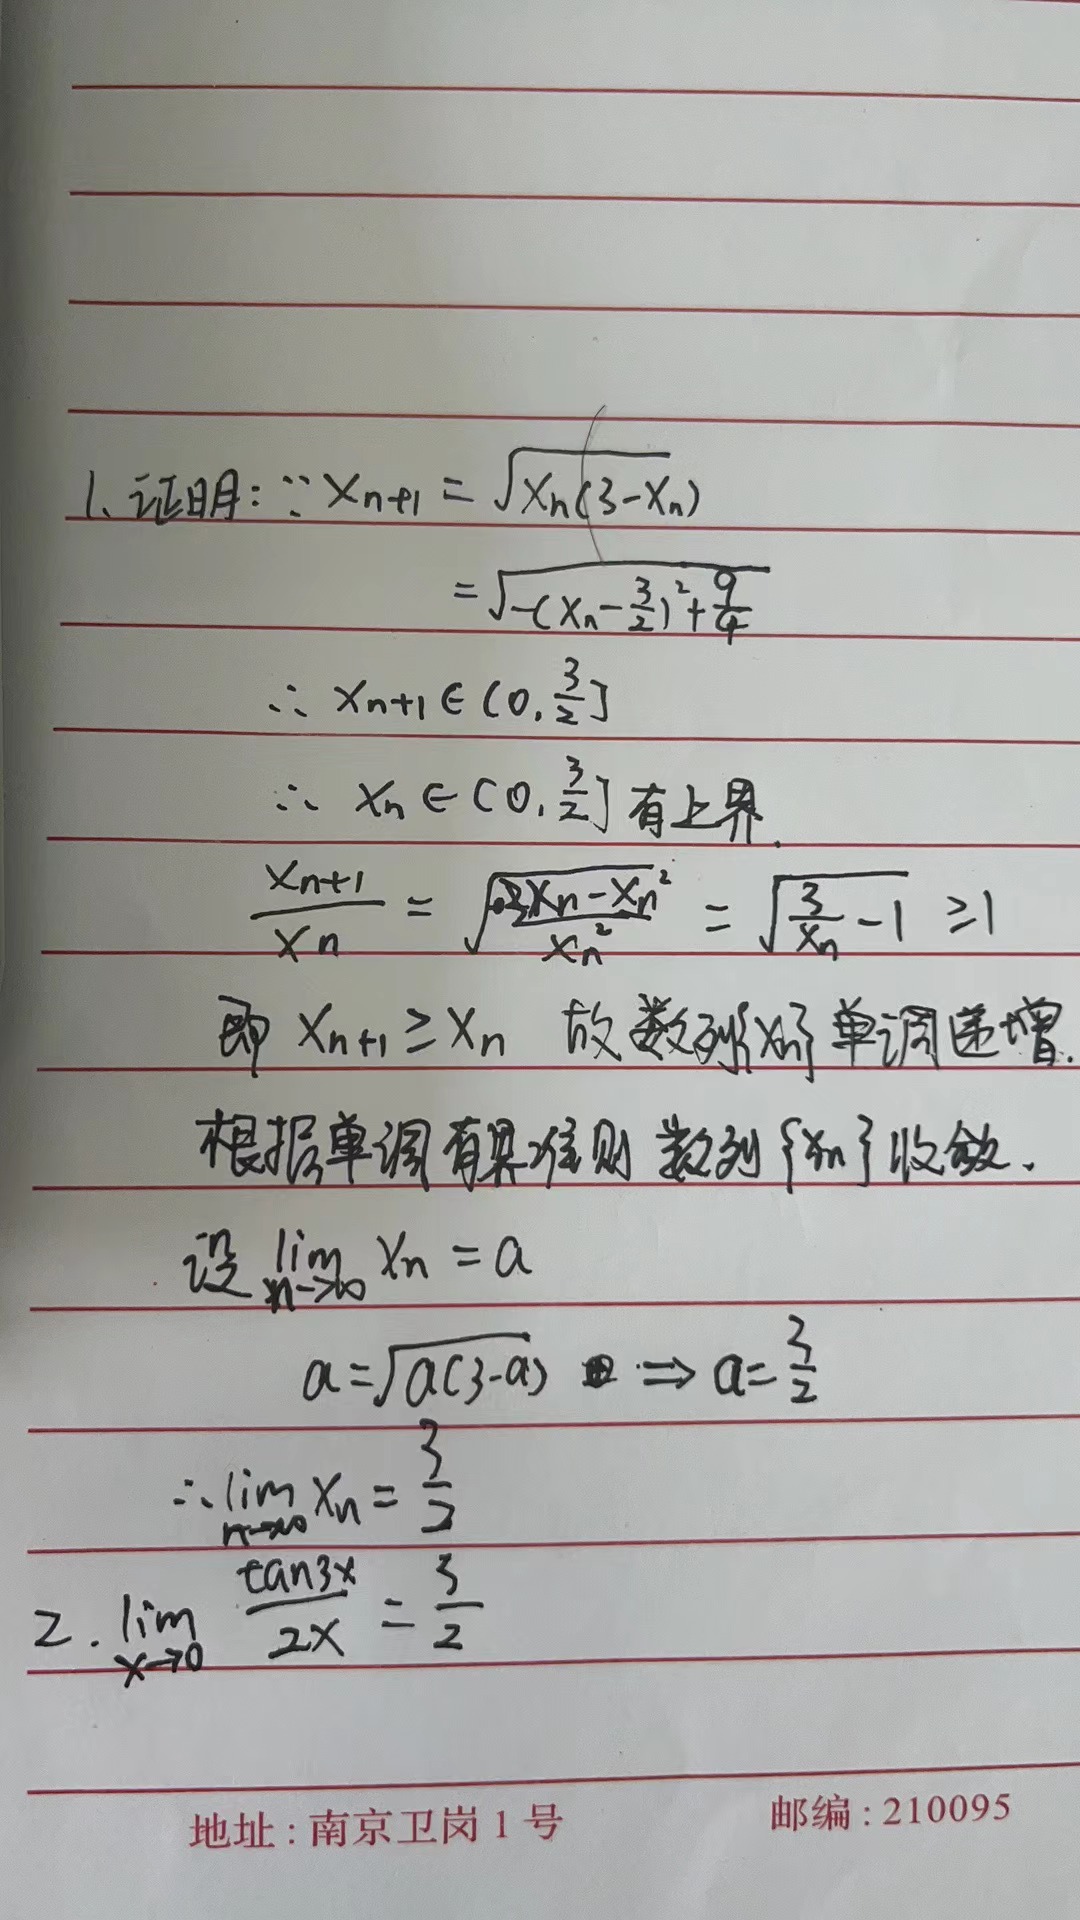 1、证明:∵ Xn+1 = √Xn(3-Xn)
= √-(Xn-3/2)²+9/4
∴ Xn+1 ∈ (0,3/2]
∴ Xn ∈ (0,3/2] 有上界.
Xn+1/Xn = √3Xn-Xn²/Xn² = √3/Xn-1 ≥1
即 Xn+1 ≥ Xn 故数列{Xn}单调递增.
根据单调有界准则 数列{Xn}收敛.
设 lim n→∞ Xn = a
a=√a(3-a) ⇒ a=3/2
∴ lim n→∞ Xn = 3/2
2. lim x→0 tan3x/2x = 3/2
地址:南京卫岗1号 邮编:210095